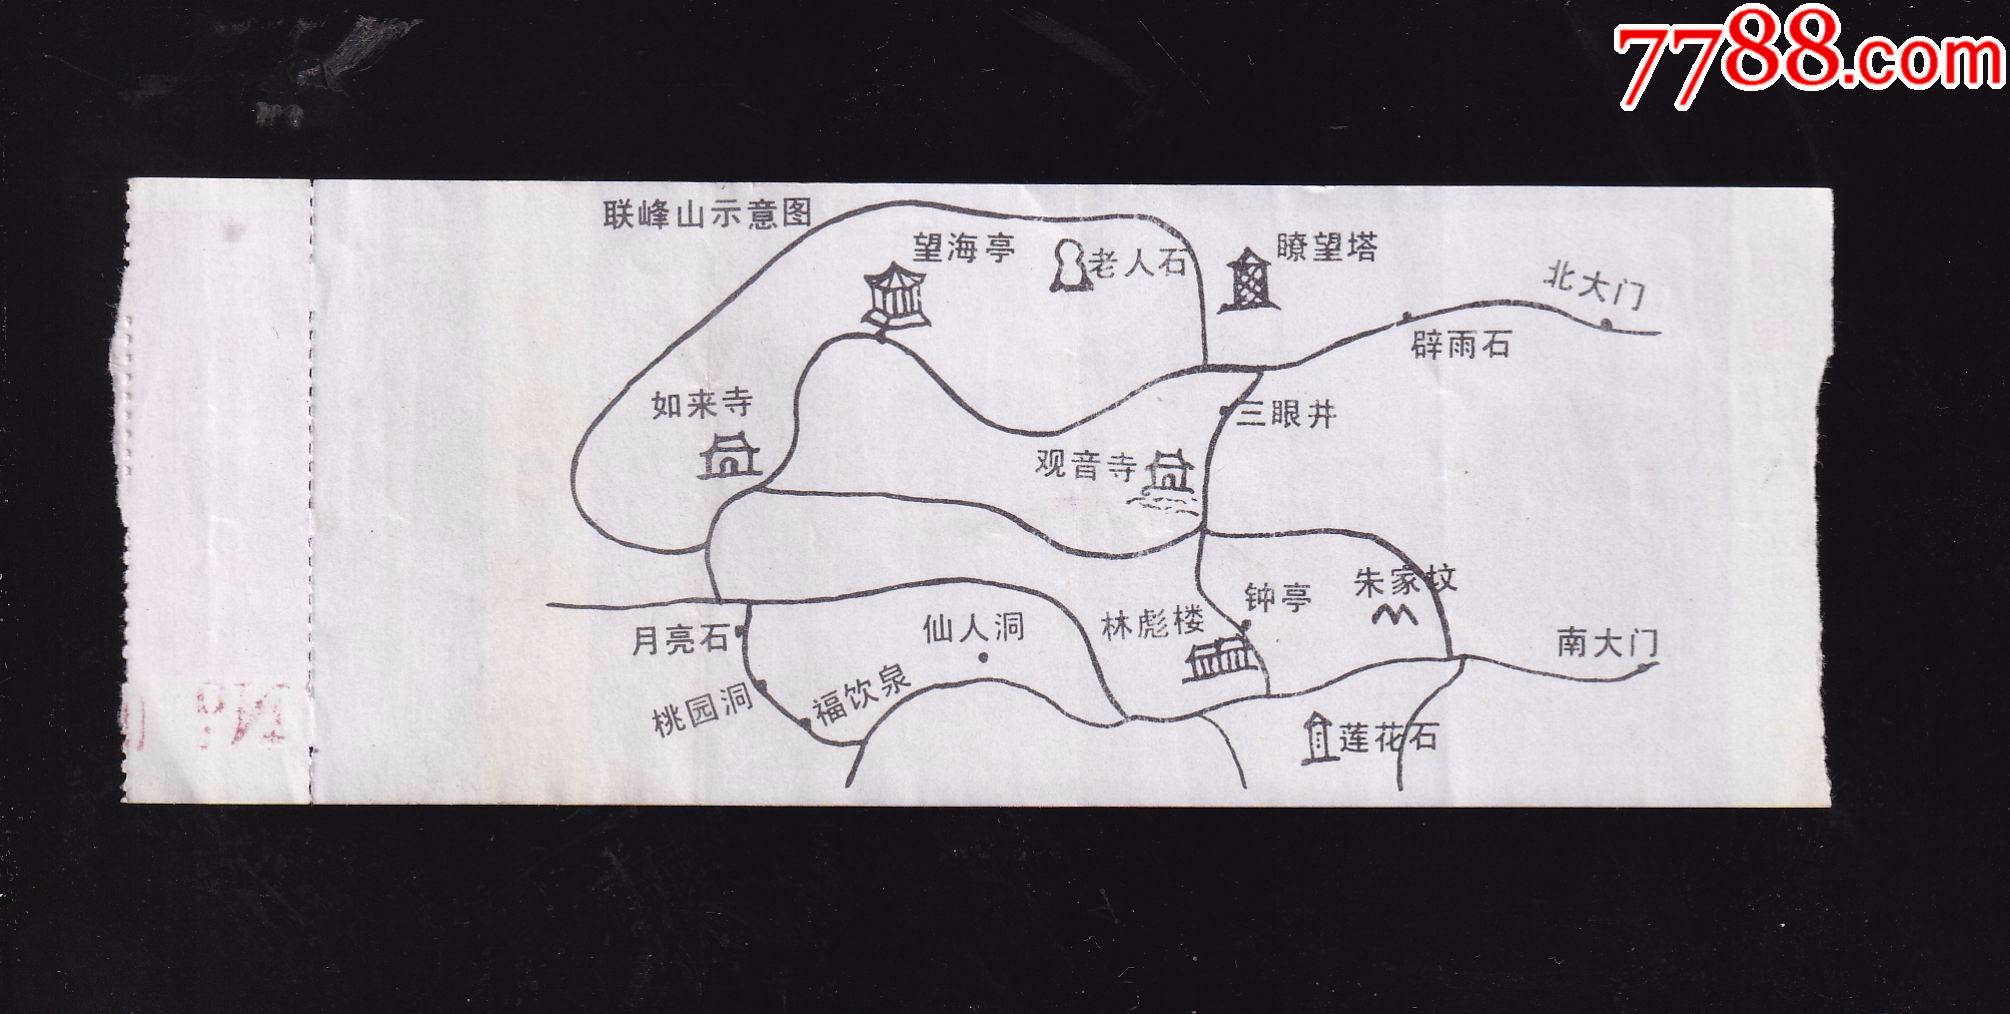 7788.com
联峰山示意图
望海亭
老人石
瞭望塔
北大门
辟雨石
如来寺
三眼井
观音寺
朱家坟
钟亭
仙人洞
林彪楼
月亮石
南大门
桃园洞
福饮泉
莲花石